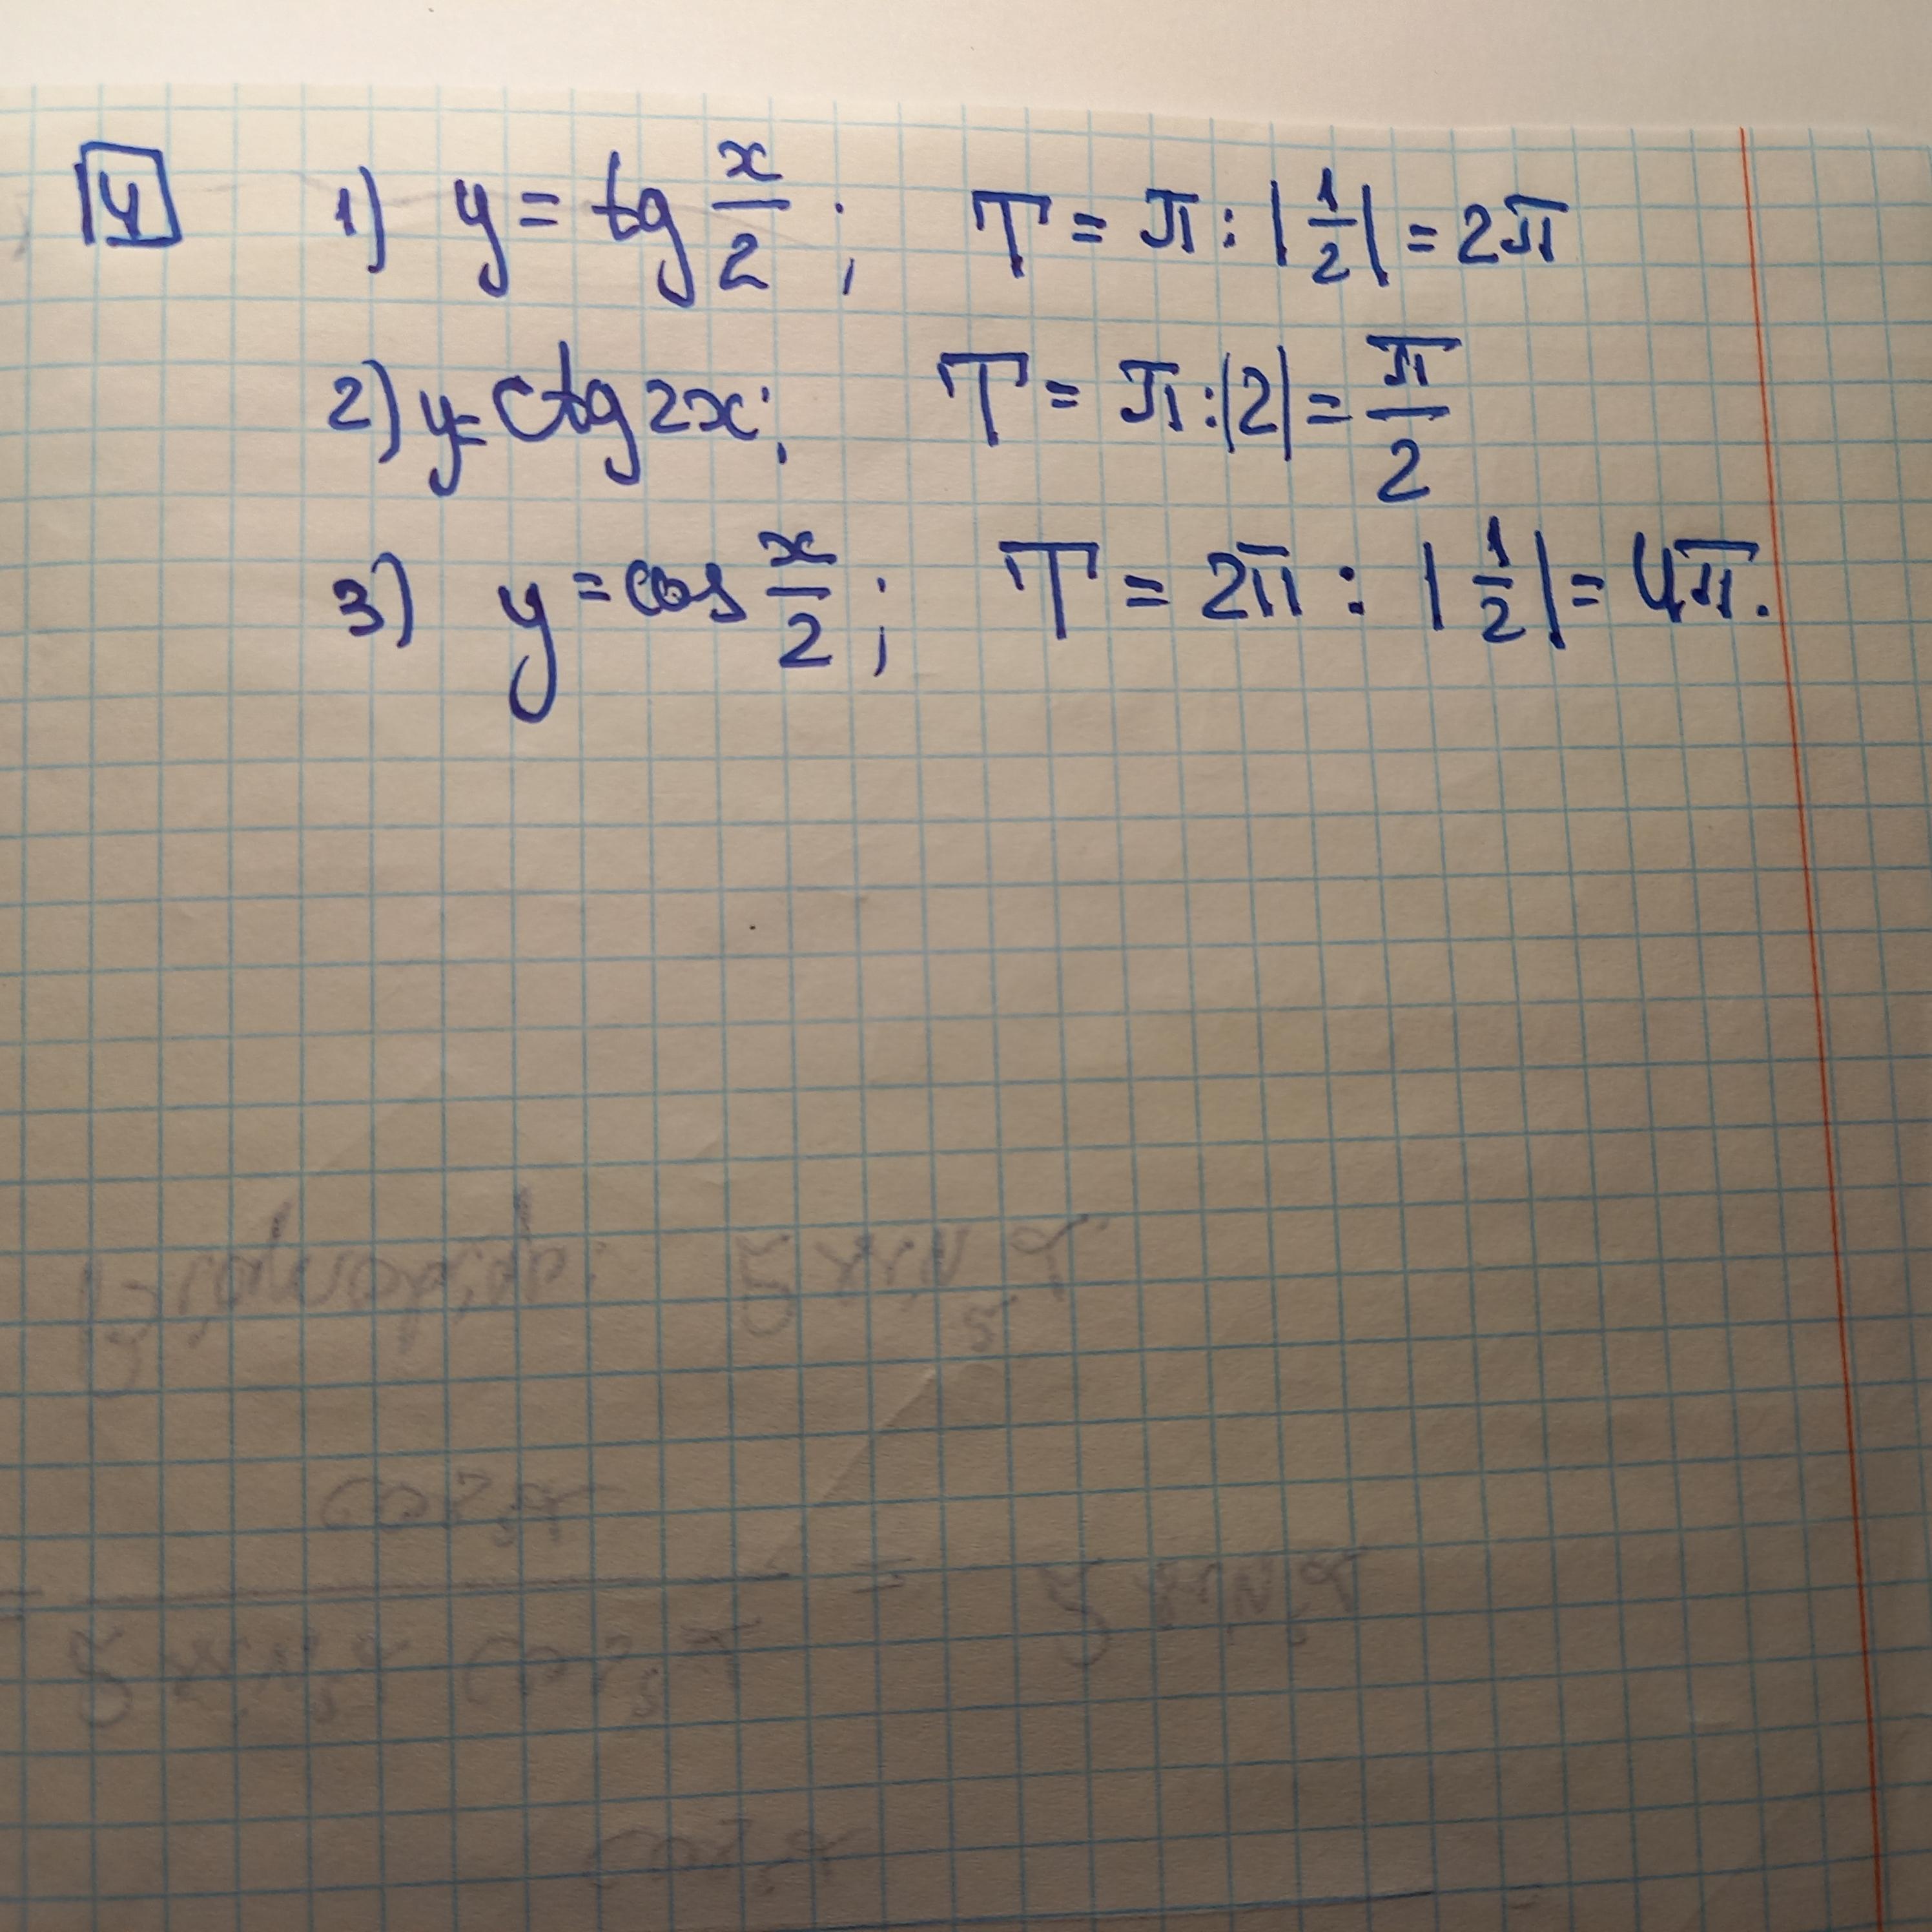 4 1) y = tg x/2 ; T = π : |1/2| = 2π
2) y = ctg 2x; T = π : |2| = π/2
3) y = cos x/2 ; T = 2π : |1/2| = 4π.